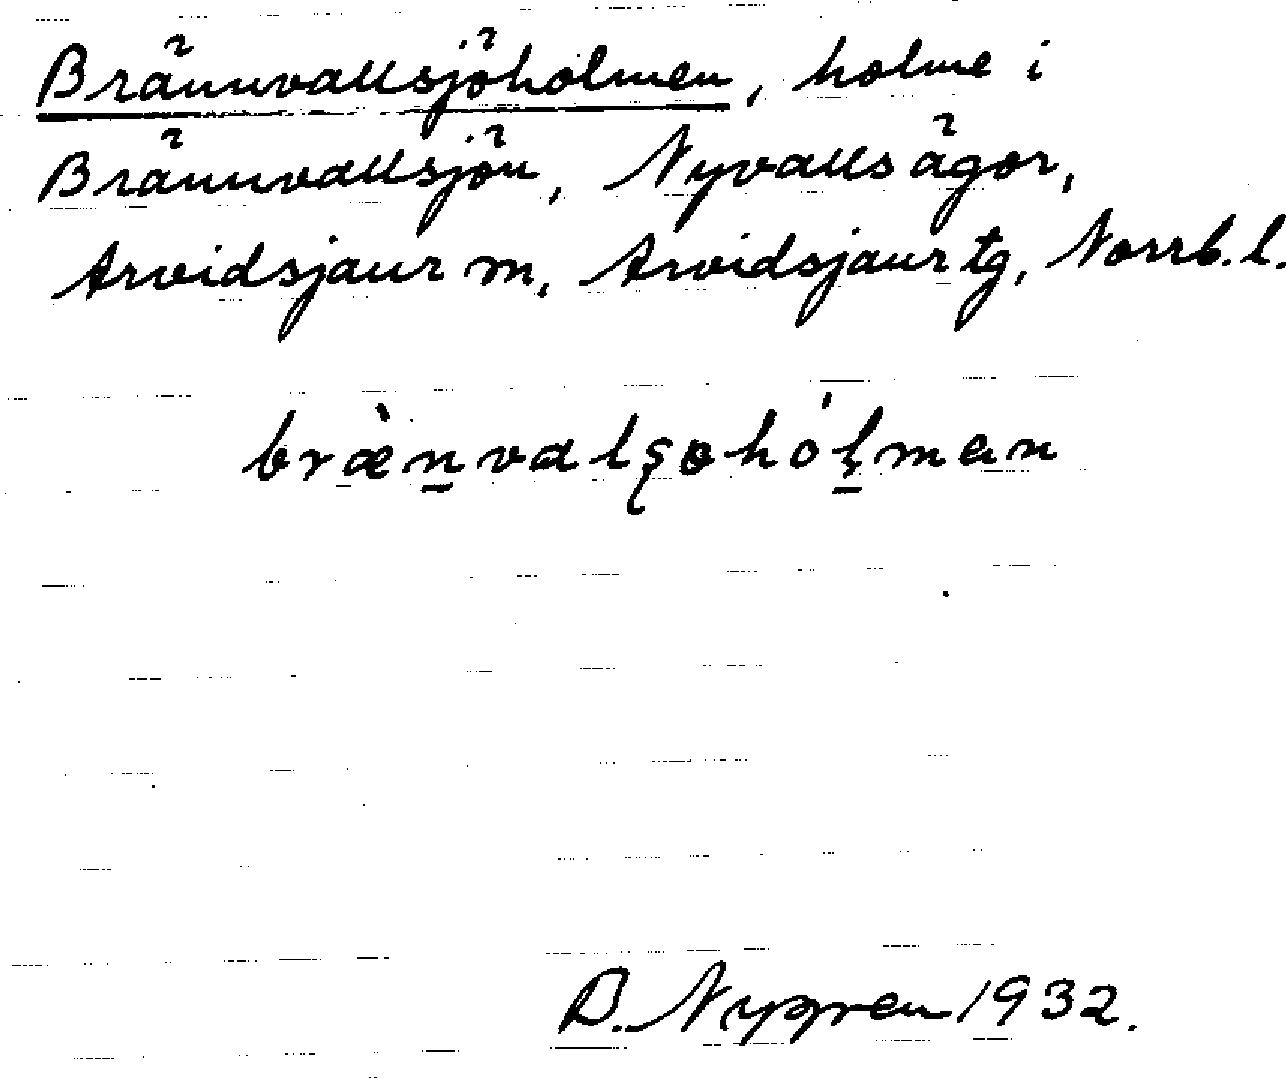 Brännvallsjöholmen, holme i
Brännvallsjön, Nyvalls ägor,
Arvidsjaur m, Arvidsjaur tg, Norrb. l.
bræ̀n̠valʂøhól̠̣man
B. Nygren 1932.